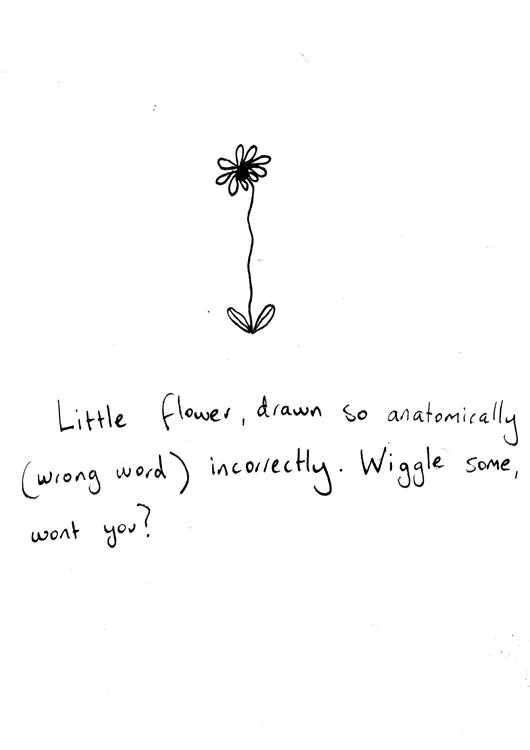 Little flower, drawn so anatomically
(wrong word) incorrectly. Wiggle some,
wont you?